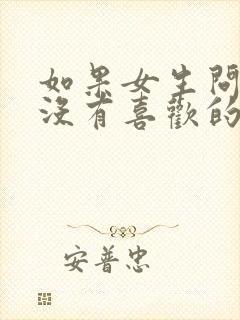 如果女生問
沒有喜歡的
安普忠